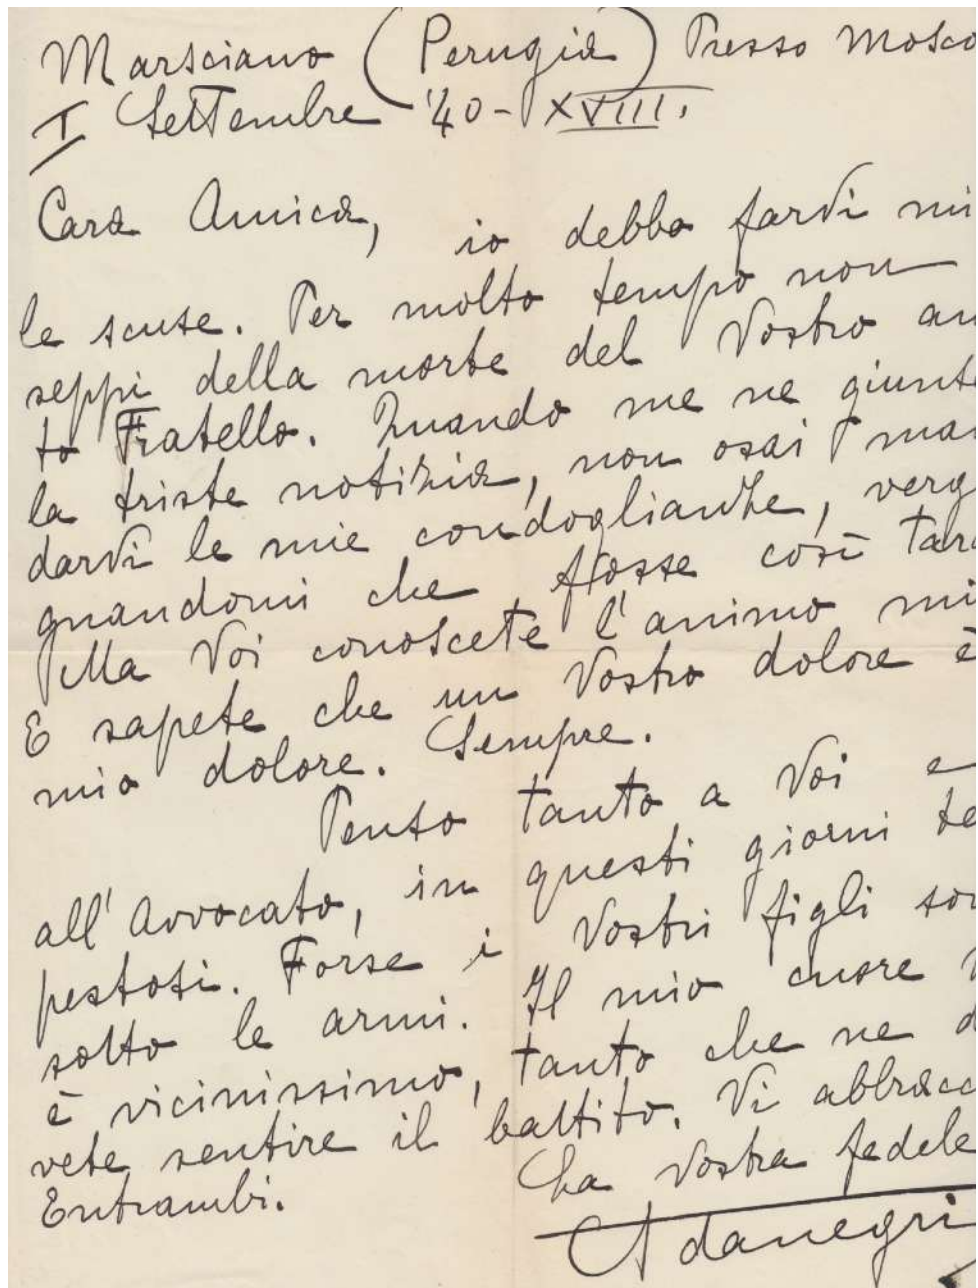 Marsciano (Perugia) Presso Mosco
I Settembre '40 - XVIII.
Cara Amica, io debbo farvi mi
le scuse. Per molto tempo non
seppi della morte del Vostro am
to Fratello. Quando me ne giunse
la triste notizia, non osai man
darvi le mie condoglianze, vergo
gnandomi che fosse così tard
Ma Voi conoscete l'animo mi
E sapete che un Vostro dolore è
mio dolore. Sempre.
Penso tanto a Voi e
all'Avvocato, in questi giorni te
pestosi. Forse i Vostri figli son
sotto le armi. Il mio cuore V
è vicinissimo, tanto che ne do
vete sentire il battito. Vi abbracc
Entrambi. La Vostra fedele
Adanegri